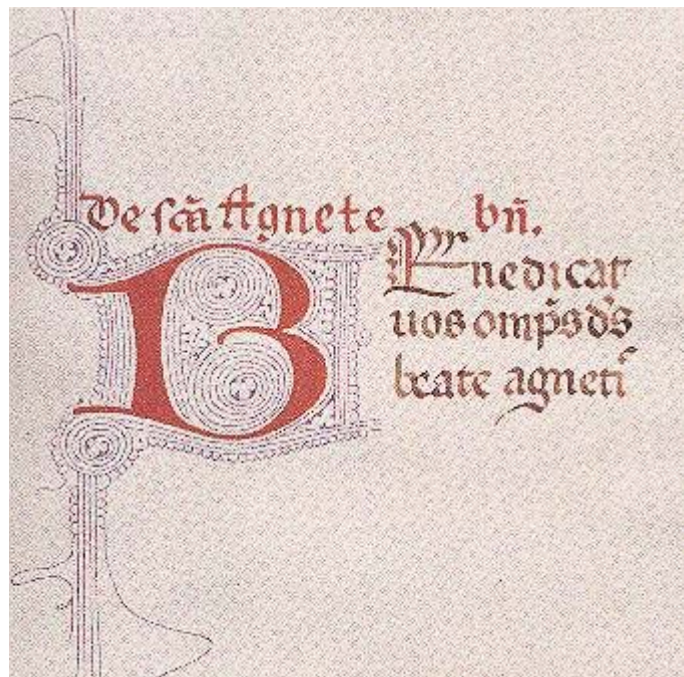 De sc̄a Agnete bn̄.
BEnedicat
uos omp̄s d̄s
beate agneti